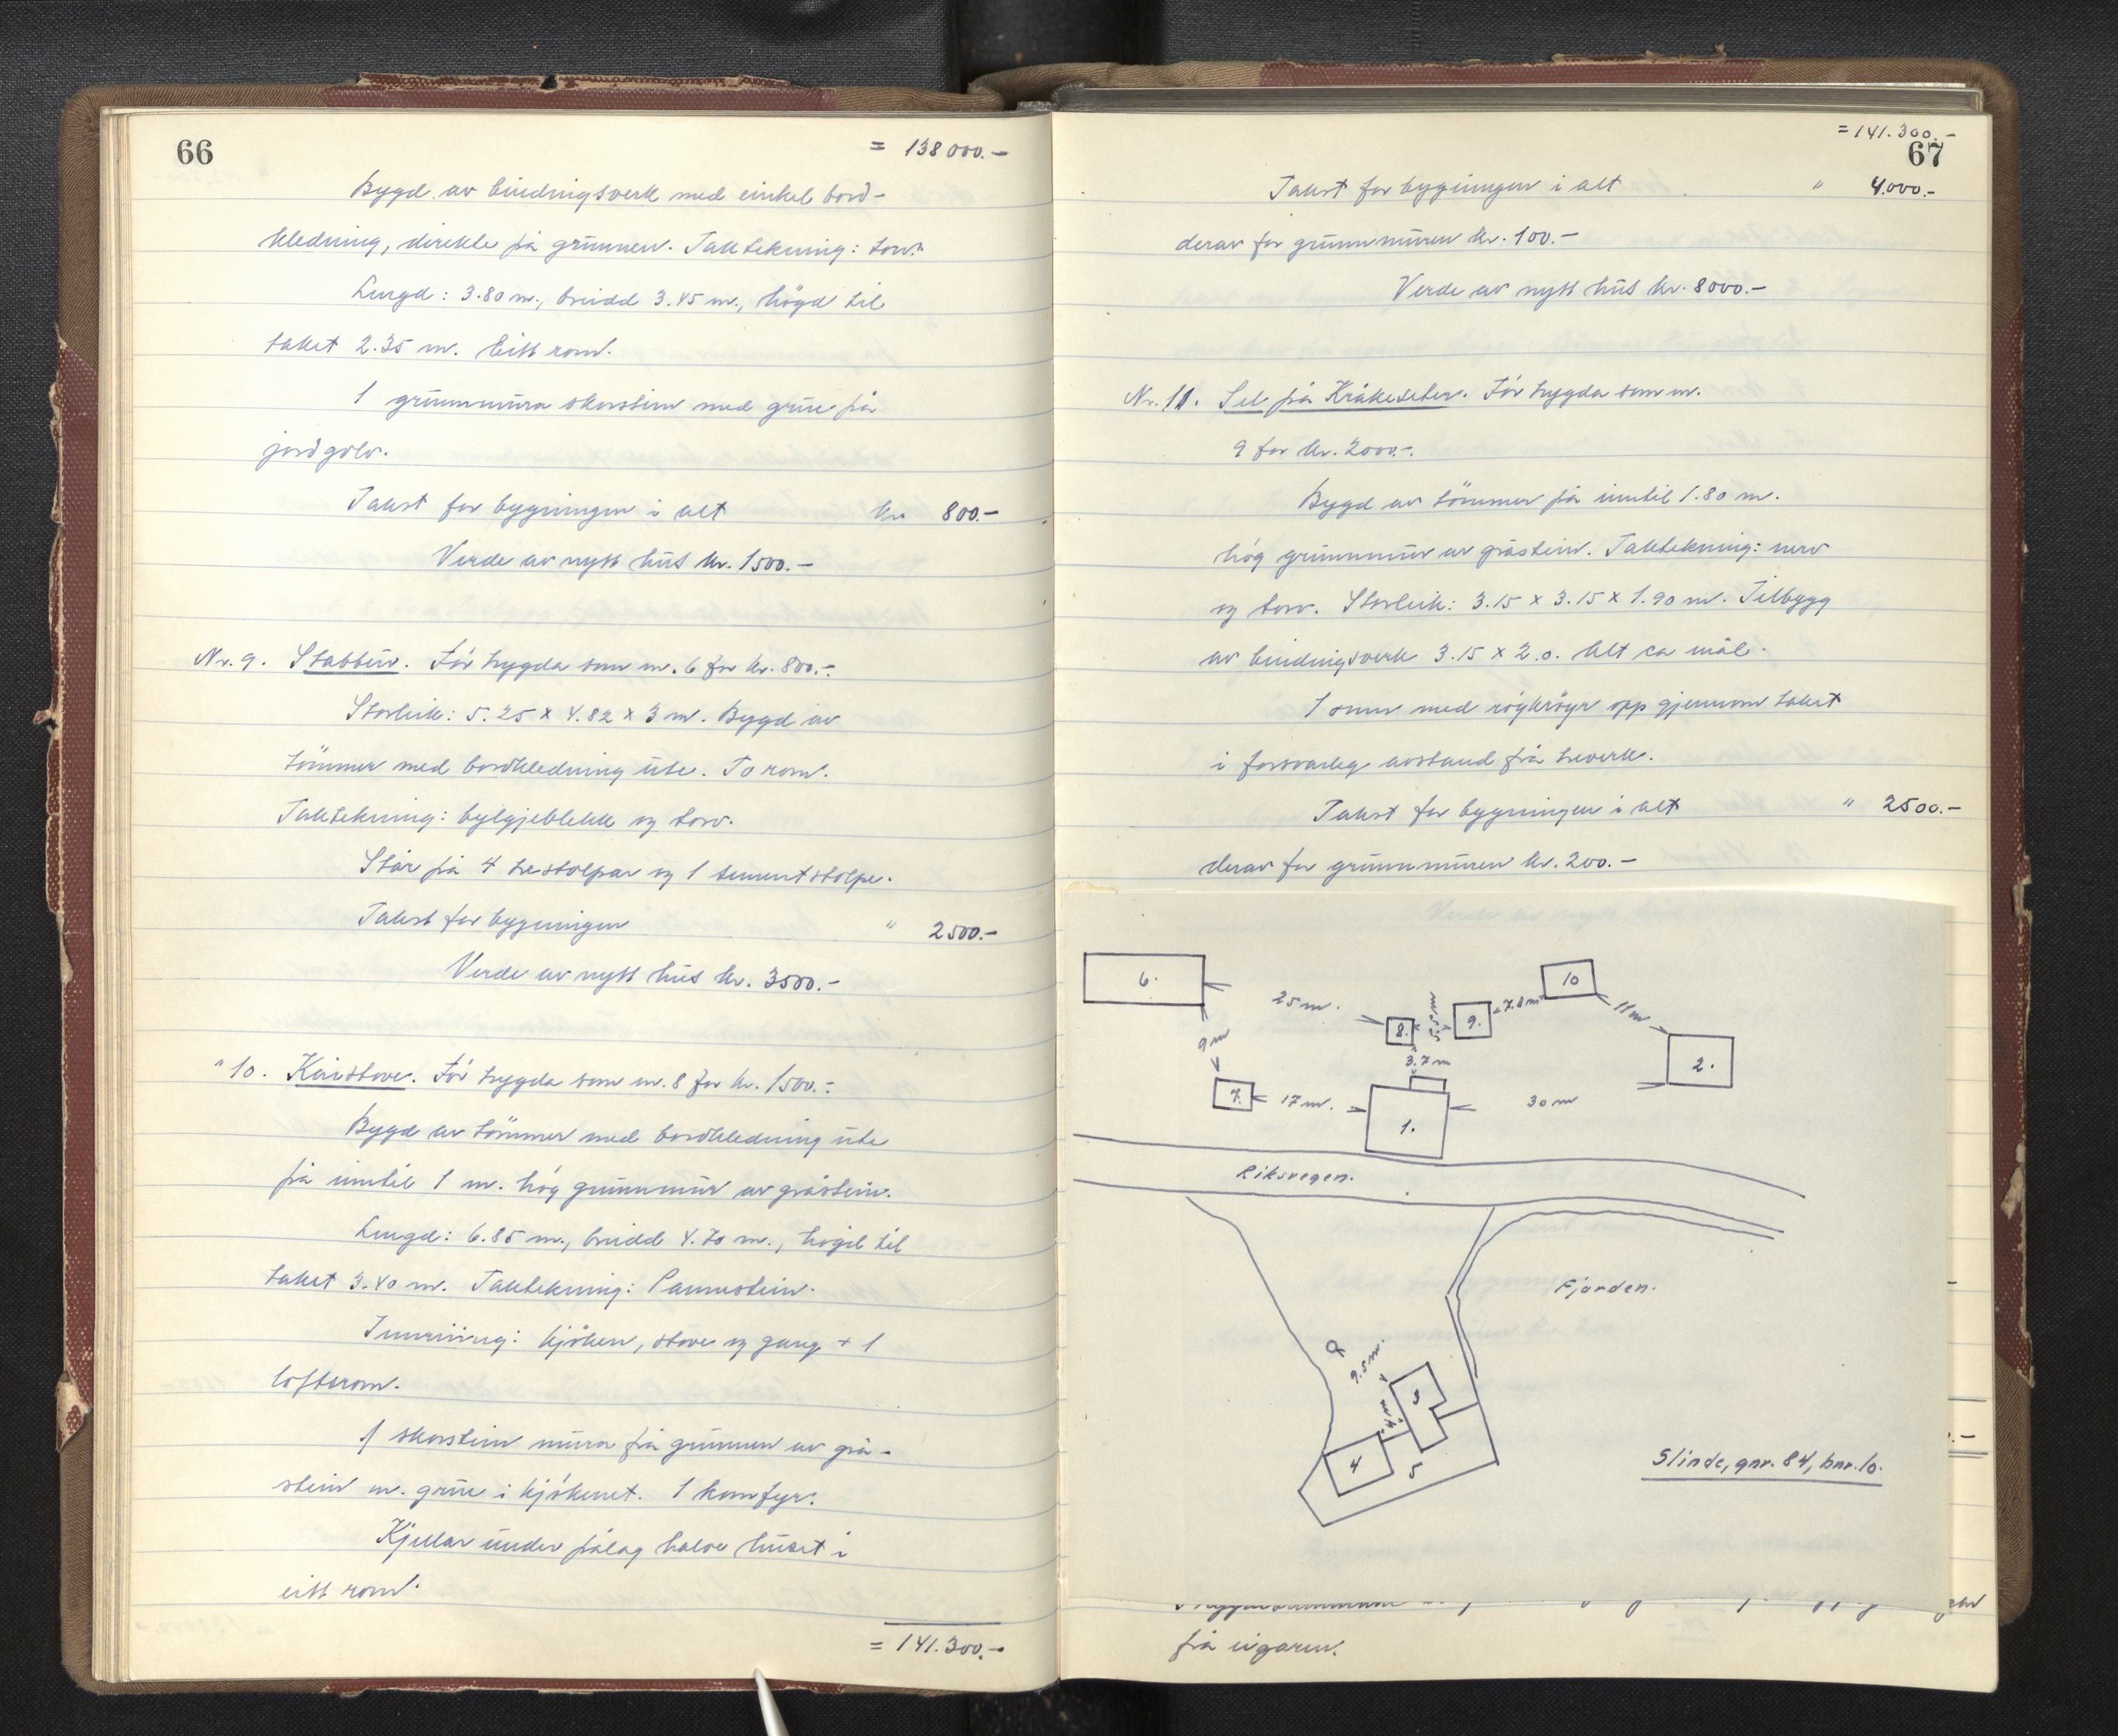 66
= 138000.-
Bygd av bindingsverk med einkel bord-
kledning, direkte på grunnen. Taktekning: torv.
Lengd: 3.80 m., breidd 3.45 m., högd til
taket 2.35 m. Eitt rom.
1 grunnmura skorstein med grue på
jordgolv.
Takst for bygningen i alt kr 800.-
Verde av nytt hus kr. 1500.-
Nr. 9. Stabbur. För trygda som nr. 6 for kr. 800.-
Storleik: 5.25 x 4.82 x 3 m. Bygd av
tömmer med bordkledning ute. To rom.
Taktekning: bylgjeblekk og torv.
Står på 4 trestolpar og 1 sementstolpe.
Takst for bygningen " 2500.-
Verde av nytt hus kr. 3500.-
" 10. Kårstove. För trygda som nr. 8 for kr. 1500.-
Bygd av tömmer med bordkledning ute
på inntil 1 m. hög grunnmur av gråstein.
Lengd: 6.85 m., breidd 4.70 m., högd til
taket 3.40 m. Taktekning: Pannestein.
Innreiing: kjöken, stove og gang + 1
loftsrom.
1 skorstein mura frå grunnen av grå-
stein m. grue i kjökenet. 1 komfyr.
Kjellar under pålag halve huset i
eitt rom.
= 141.300.-
= 141.300.-
67
Takst for bygningen i alt " 4.000.-
derav for grunnmuren kr. 100.-
Verde av nytt hus kr. 8000.-
Nr. 11. Sel på Kråkeseter. För trygda som nr.
9 for kr. 2000.-
Bygd av tömmer på inntil 1.80 m.
hög grunnmur av gråstein. Taktekning: nevr
og torv. Storleik: 3.15 x 3.15 x 1.90 m. Tilbygg
av bindingsverk 3.15 x 2.0. Alt ca mål.
1 omn med röykröyr opp gjennom taket
i forsvarleg avstand frå treverk.
Takst for bygningen i alt " 2500.-
derav for grunnmuren kr. 200.-
6.
25 m.
8.
5.5 m
9.
7.8 m
10
11 m
2.
9 m
3.7 m
7.
17 m.
1.
30 m
Riksvegen.
Fjorden.
9.5 m.
3
4 m
4
5
Slinde, gnr. 84, bnr. 10.
frå eigaren.